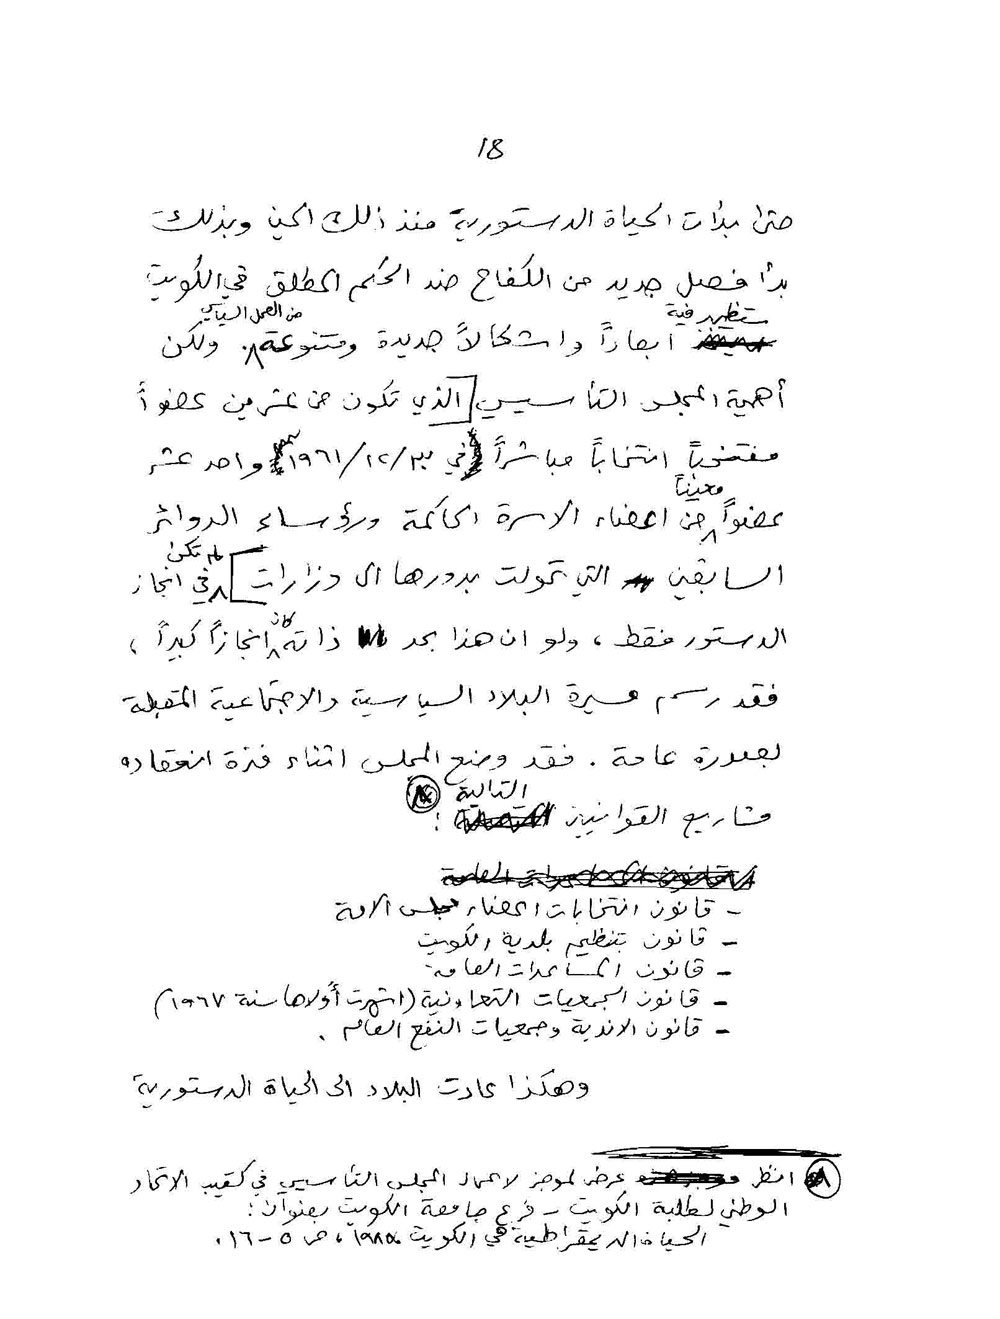 18
حتى بدأت الحياة الدستورية منذ ذلك الحين وبذلك
بدأ فصل جديد من الكفاح ضد الحكم المطلق في الكويت
ستظهر فيه أبعاداً واشكالاً جديدة ومتنوعة من العمل السياسي. ولكن
أهمية المجلس التأسيسي [الذي تكون من عشرين عضواً
منتخباً انتخاباً مباشراً (في ٣٠/١٢/١٩٦١) واحد عشر
عضواً معيناً من اعضاء الاسرة الحاكمة ورؤساء الدوائر
السابقين التي تحولت بدورها الى وزارات] لم تكن في انجاز
الدستور فقط، ولو ان هذا بحد ذاته كان انجازاً كبيراً،
فقد رسم مسيرة البلاد السياسية والاجتماعية المقبلة
بصورة عامة. فقد وضع المجلس اثناء فترة انعقاده
مشاريع القوانين التالية :
- قانون انتخابات اعضاء مجلس الامة
- قانون تنظيم بلدية الكويت
- قانون المساعدات العامة
- قانون الجمعيات التعاونية (اشهرت أولاها سنة ١٩٦٧)
- قانون الاندية وجمعيات النفع العام.
وهكذا عادت البلاد الى الحياة الدستورية
انظر عرض لموجز لاعمال المجلس التأسيسي في كتيب الاتحاد
الوطني لطلبة الكويت - فرع جامعة الكويت بعنوان:
الحياة الديمقراطية في الكويت ١٩٨٥، ص ٥-١٦.